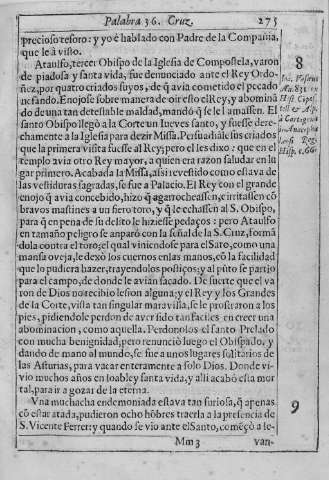 Palabra 36. Cruz. 275
precioso tesoro: y yo è hablado con Padre de la Compañia,
que le à visto.
Ataulfo, tercer Obispo de la Iglesia de Compostela, varon
de piadosa y santa vida, fue denunciado ante el Rey Ordo-
ñez, por quatro criados suyos, de q̃ avia cometido el pecado
nefando. Enojose sobre manera de oir esto el Rey, y abominã
do de una tan detestable maldad, mandó q̃ se le llamassen. El
santo Obispo llegò a la Corte un Iueves santo, y fuesse dere-
chamente a la Iglesia para dezir Missa. Persuadiãle sus criados
que la primera visita fuesse al Rey; pero el les dixo: que en el
templo avia otro Rey mayor, a quien era razon saludar en lu
gar primero. Acabada la Missa, assi revestido como estava de
las vestiduras sagradas, se fue a Palacio. El Rey con el grande
enojo q̃ avia concebido, hizo q̃ agarrocheassen, e irritassen cõ
bravos mastines a un fiero toro, y q̃ le echassen al S. Obispo,
para q̃ en pena de su delito le hiziesse pedaços: pero Ataulfo
en tamaño peligro se anparó con la señal de la S. Cruz, formã
dola contra el toro; el qual viniendose para el Sãto, como una
mansa oveja, le dexò los cuernos en las manos, cõ la facilidad
que lo pudiera hazer, trayendolos postiços; y al pũto se partjo
para el campo, de donde le avian sacado. De suerte que el va
ron de Dios no recibio lesion alguna; y el Rey y los Grandes
de la Corte, vista tan singular maravilla, se le prostraron a los
pies, pidiendole perdon de aver sido tan faciles en creer una
abominacion, como aquella. Perdonolos el santo Prelado
con mucha benignidad; pero renunciò luego el Obispado, y
dando de mano al mundo, se fue a unos lugares solitarios de
las Asturias, para vacar enteramente a solo Dios. Donde vi-
vio muchos años en loable y santa vida, y alli acabò esta mor
tal, para ir a gozar de la eterna.
Vna muchacha endemoniada estava tan furiosa, q̃ apenas
cõ estar atada, pudieron ocho hõbres traerla a la presencia de
S. Vicente Ferrer: y quando se vio ante el Santo, comẽçò a le-
Mm 3 van-
8
Ioa. Vasæus
An. 831. in
Hist. Cõpost.
à Cartagena
in Anaceph
Reg
Hisp. c. 66.
9